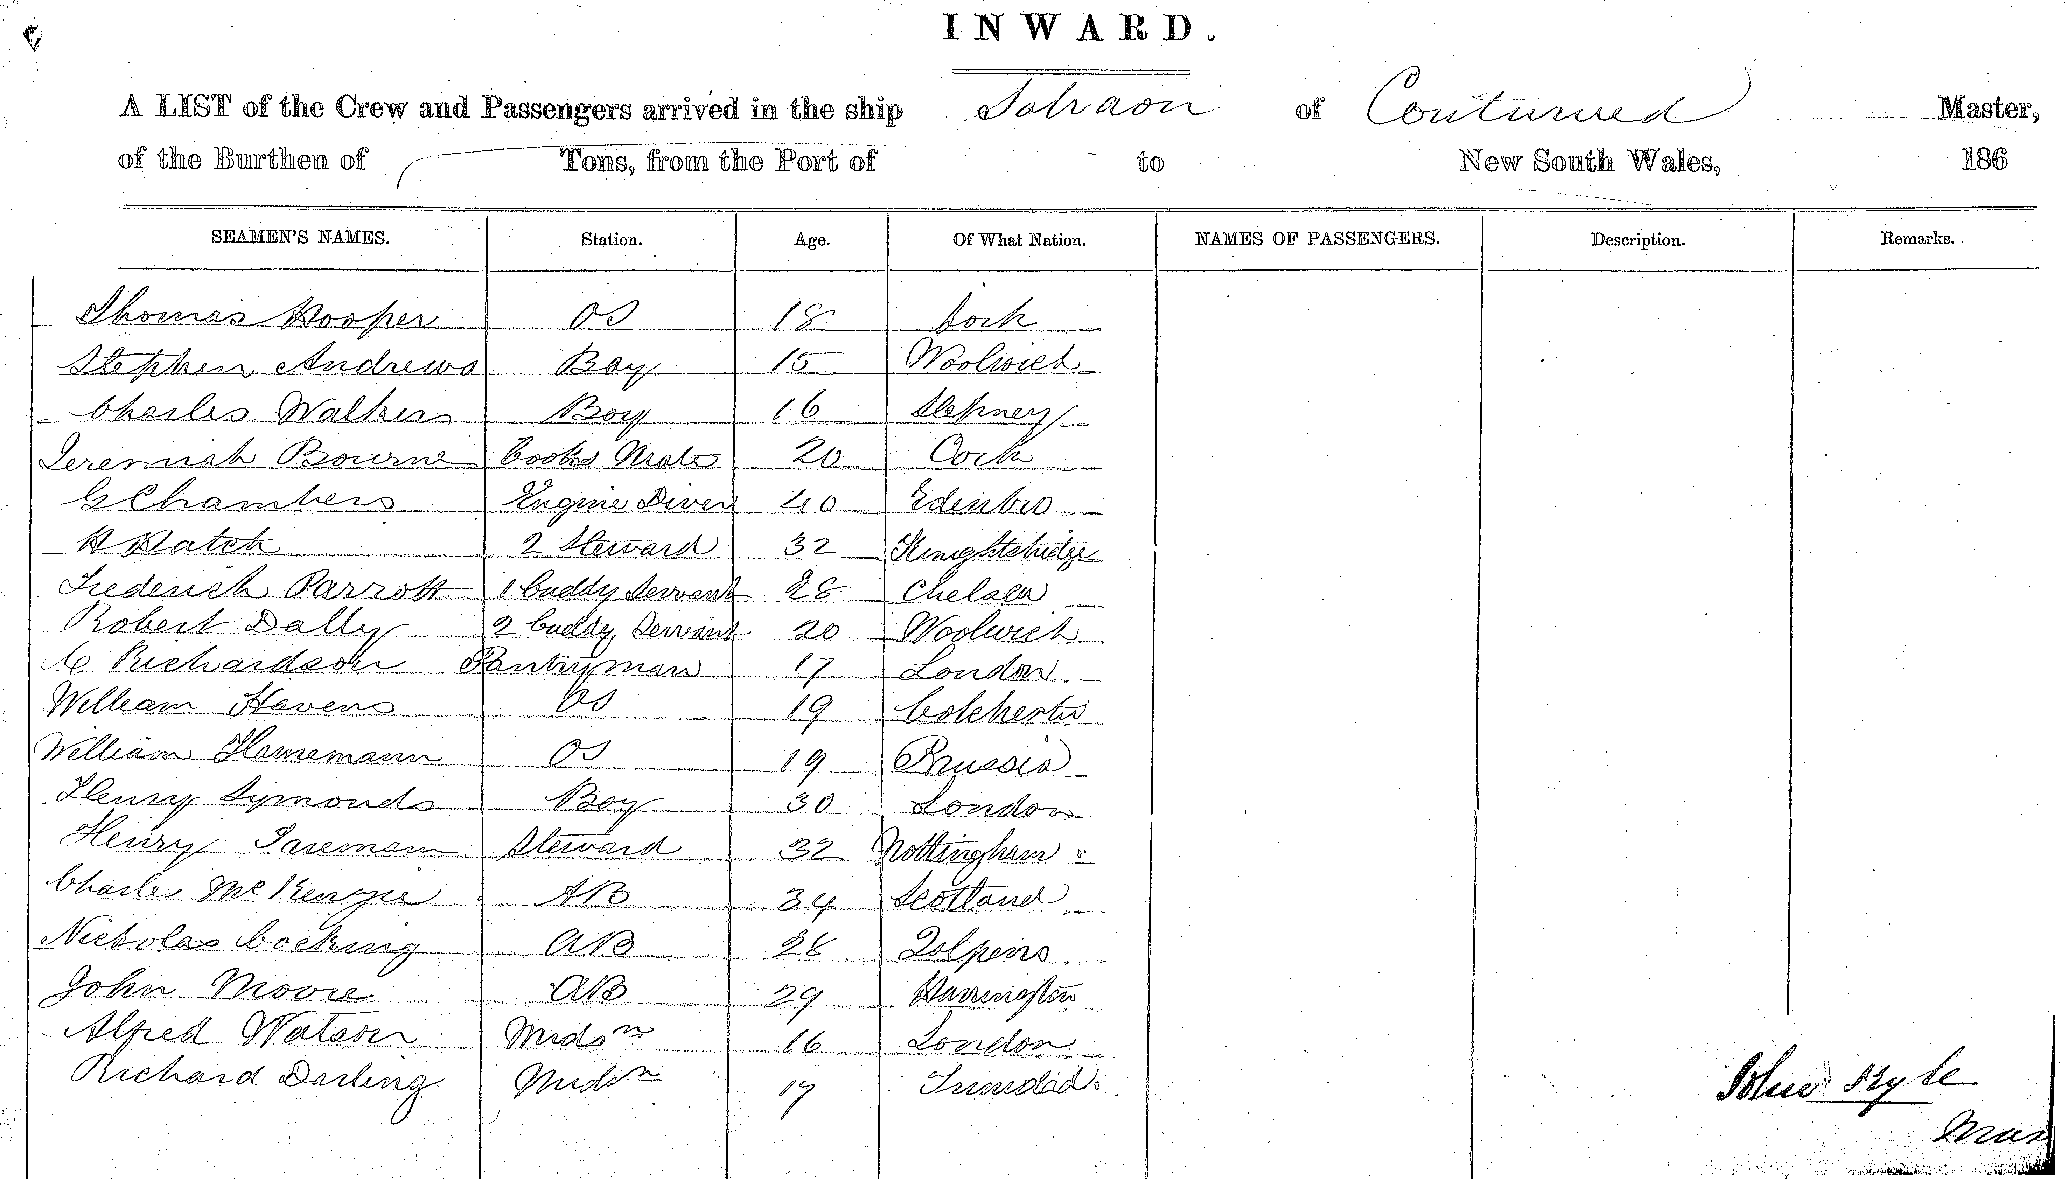 INWARD.
A LIST of the Crew and Passengers arrived in the ship Sobraon of Continued Master,
of the Burthen of Tons, from the Port of to New South Wales, 186
SEAMEN'S NAMES. Station. Age. Of What Nation. NAMES OF PASSENGERS. Description. Remarks.
Thomas Hooper OS 18 Cork
Stephen Andrews Boy 15 Woolwich
Charles Walkers Boy 16 Stepney
Jeremiah Bourne Cooks Mate 20 Cork
G Chambers Engine Diver 40 Edinbro
H Hatch 2 Steward 32 Knightsbridge
Frederick Parrott 1 Cuddy Servant 28 Chelsea
Robert Dally 2 Cuddy Servant 20 Woolwich
C Richardson Pantryman 17 London
William Havens OS 19 Colchester
William Hannemann OS 19 Prussia
Henry Symonds Boy 30 London
Henry Steward 32 Nottingham
Charles McKenzie AB 34 Scotland
Nicholas Cocking AB 28
John Moore AB 29 Warrington
Alfred Watson Midsn 16 London
Richard Darling Midsn 17 Trinidad
John Kyle
Mas